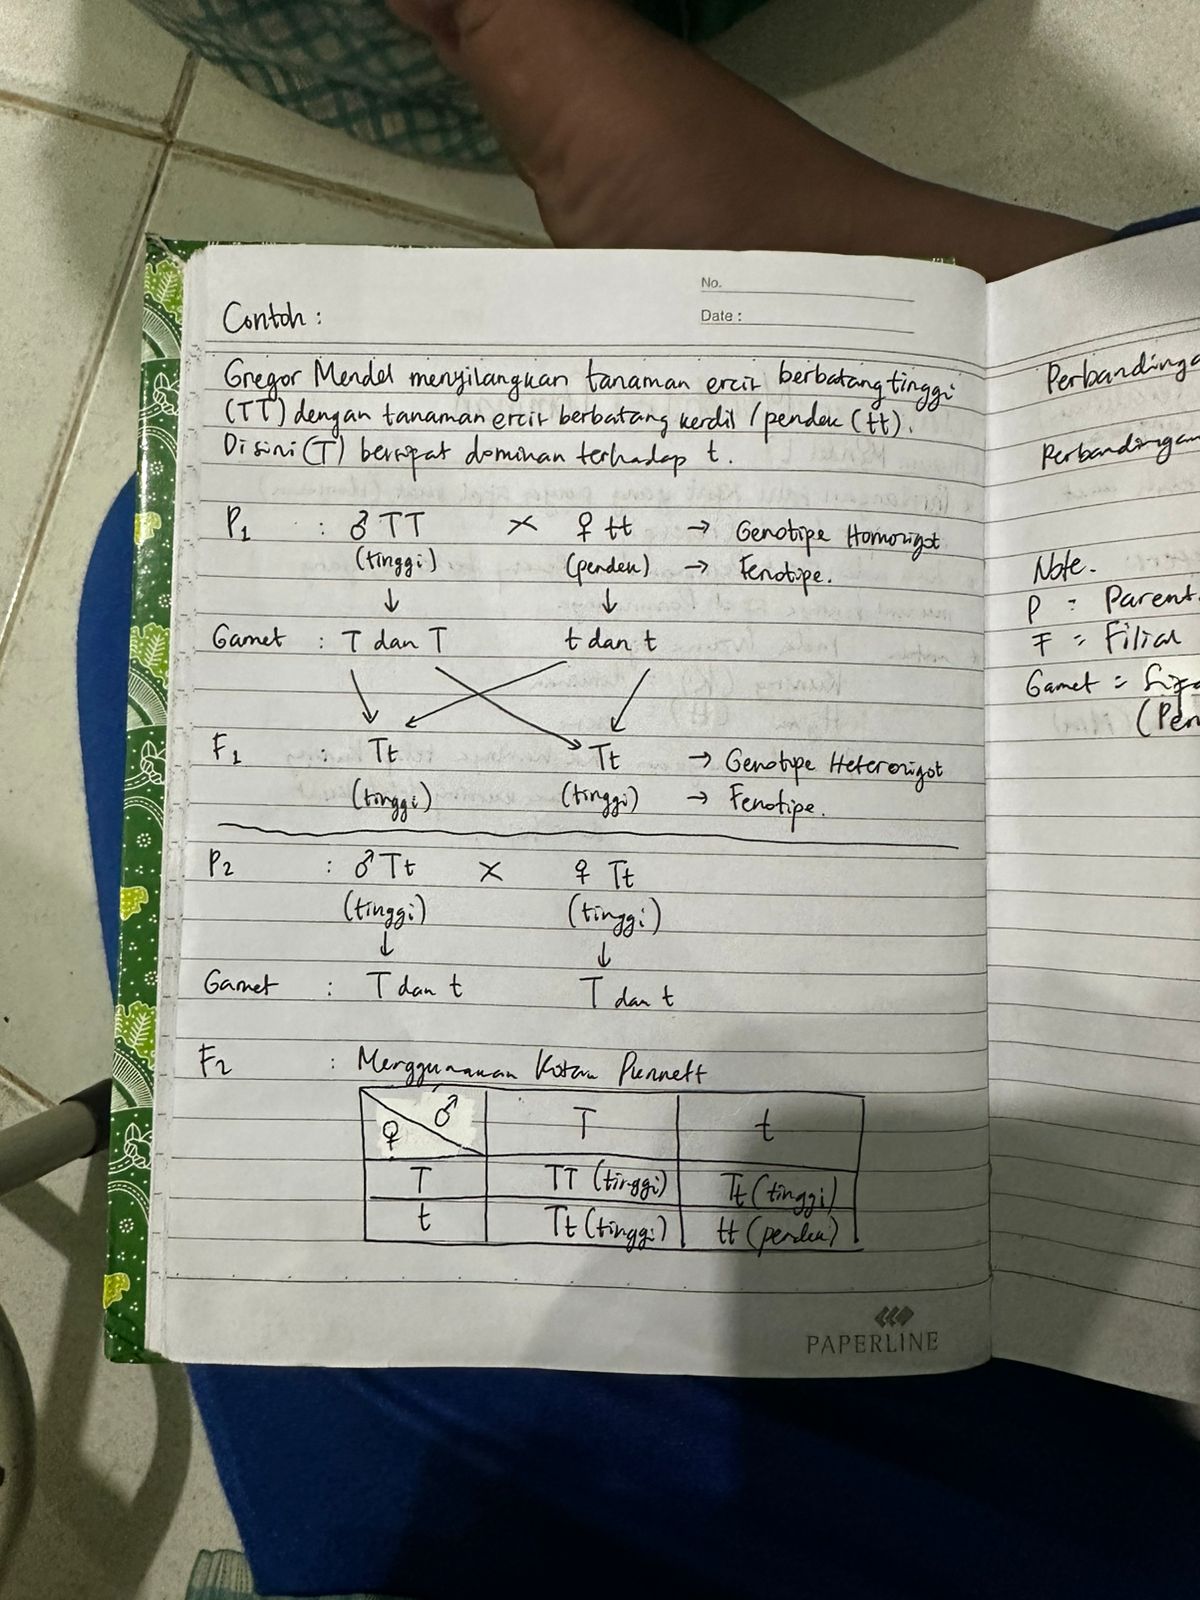 No.
Date :
Contoh :
Gregor Mendel menyilangkan tanaman ercis berbatang tinggi
(TT) dengan tanaman ercis berbatang kerdil / pendek (tt).
Disini (T) bersifat dominan terhadap t.
P1 : ♂ TT × ♀ tt → Genotipe Homozigot
(tinggi) (pendek) → Fenotipe.
↓ ↓
Gamet : T dan T t dan t
F1 : Tt Tt → Genotipe Heterozigot
(tinggi) (tinggi) → Fenotipe.
P2 : ♂ Tt × ♀ Tt
(tinggi) (tinggi)
↓ ↓
Gamet : T dan t T dan t
F2 : Menggunakan Kotak Punnett
♀ ♂ T t
T TT (tinggi) Tt (tinggi)
t Tt (tinggi) tt (pendek)
PAPERLINE
Perbandinga
Perbandingan
Note.
P = Parent
F = Filial
Gamet =
(Pen